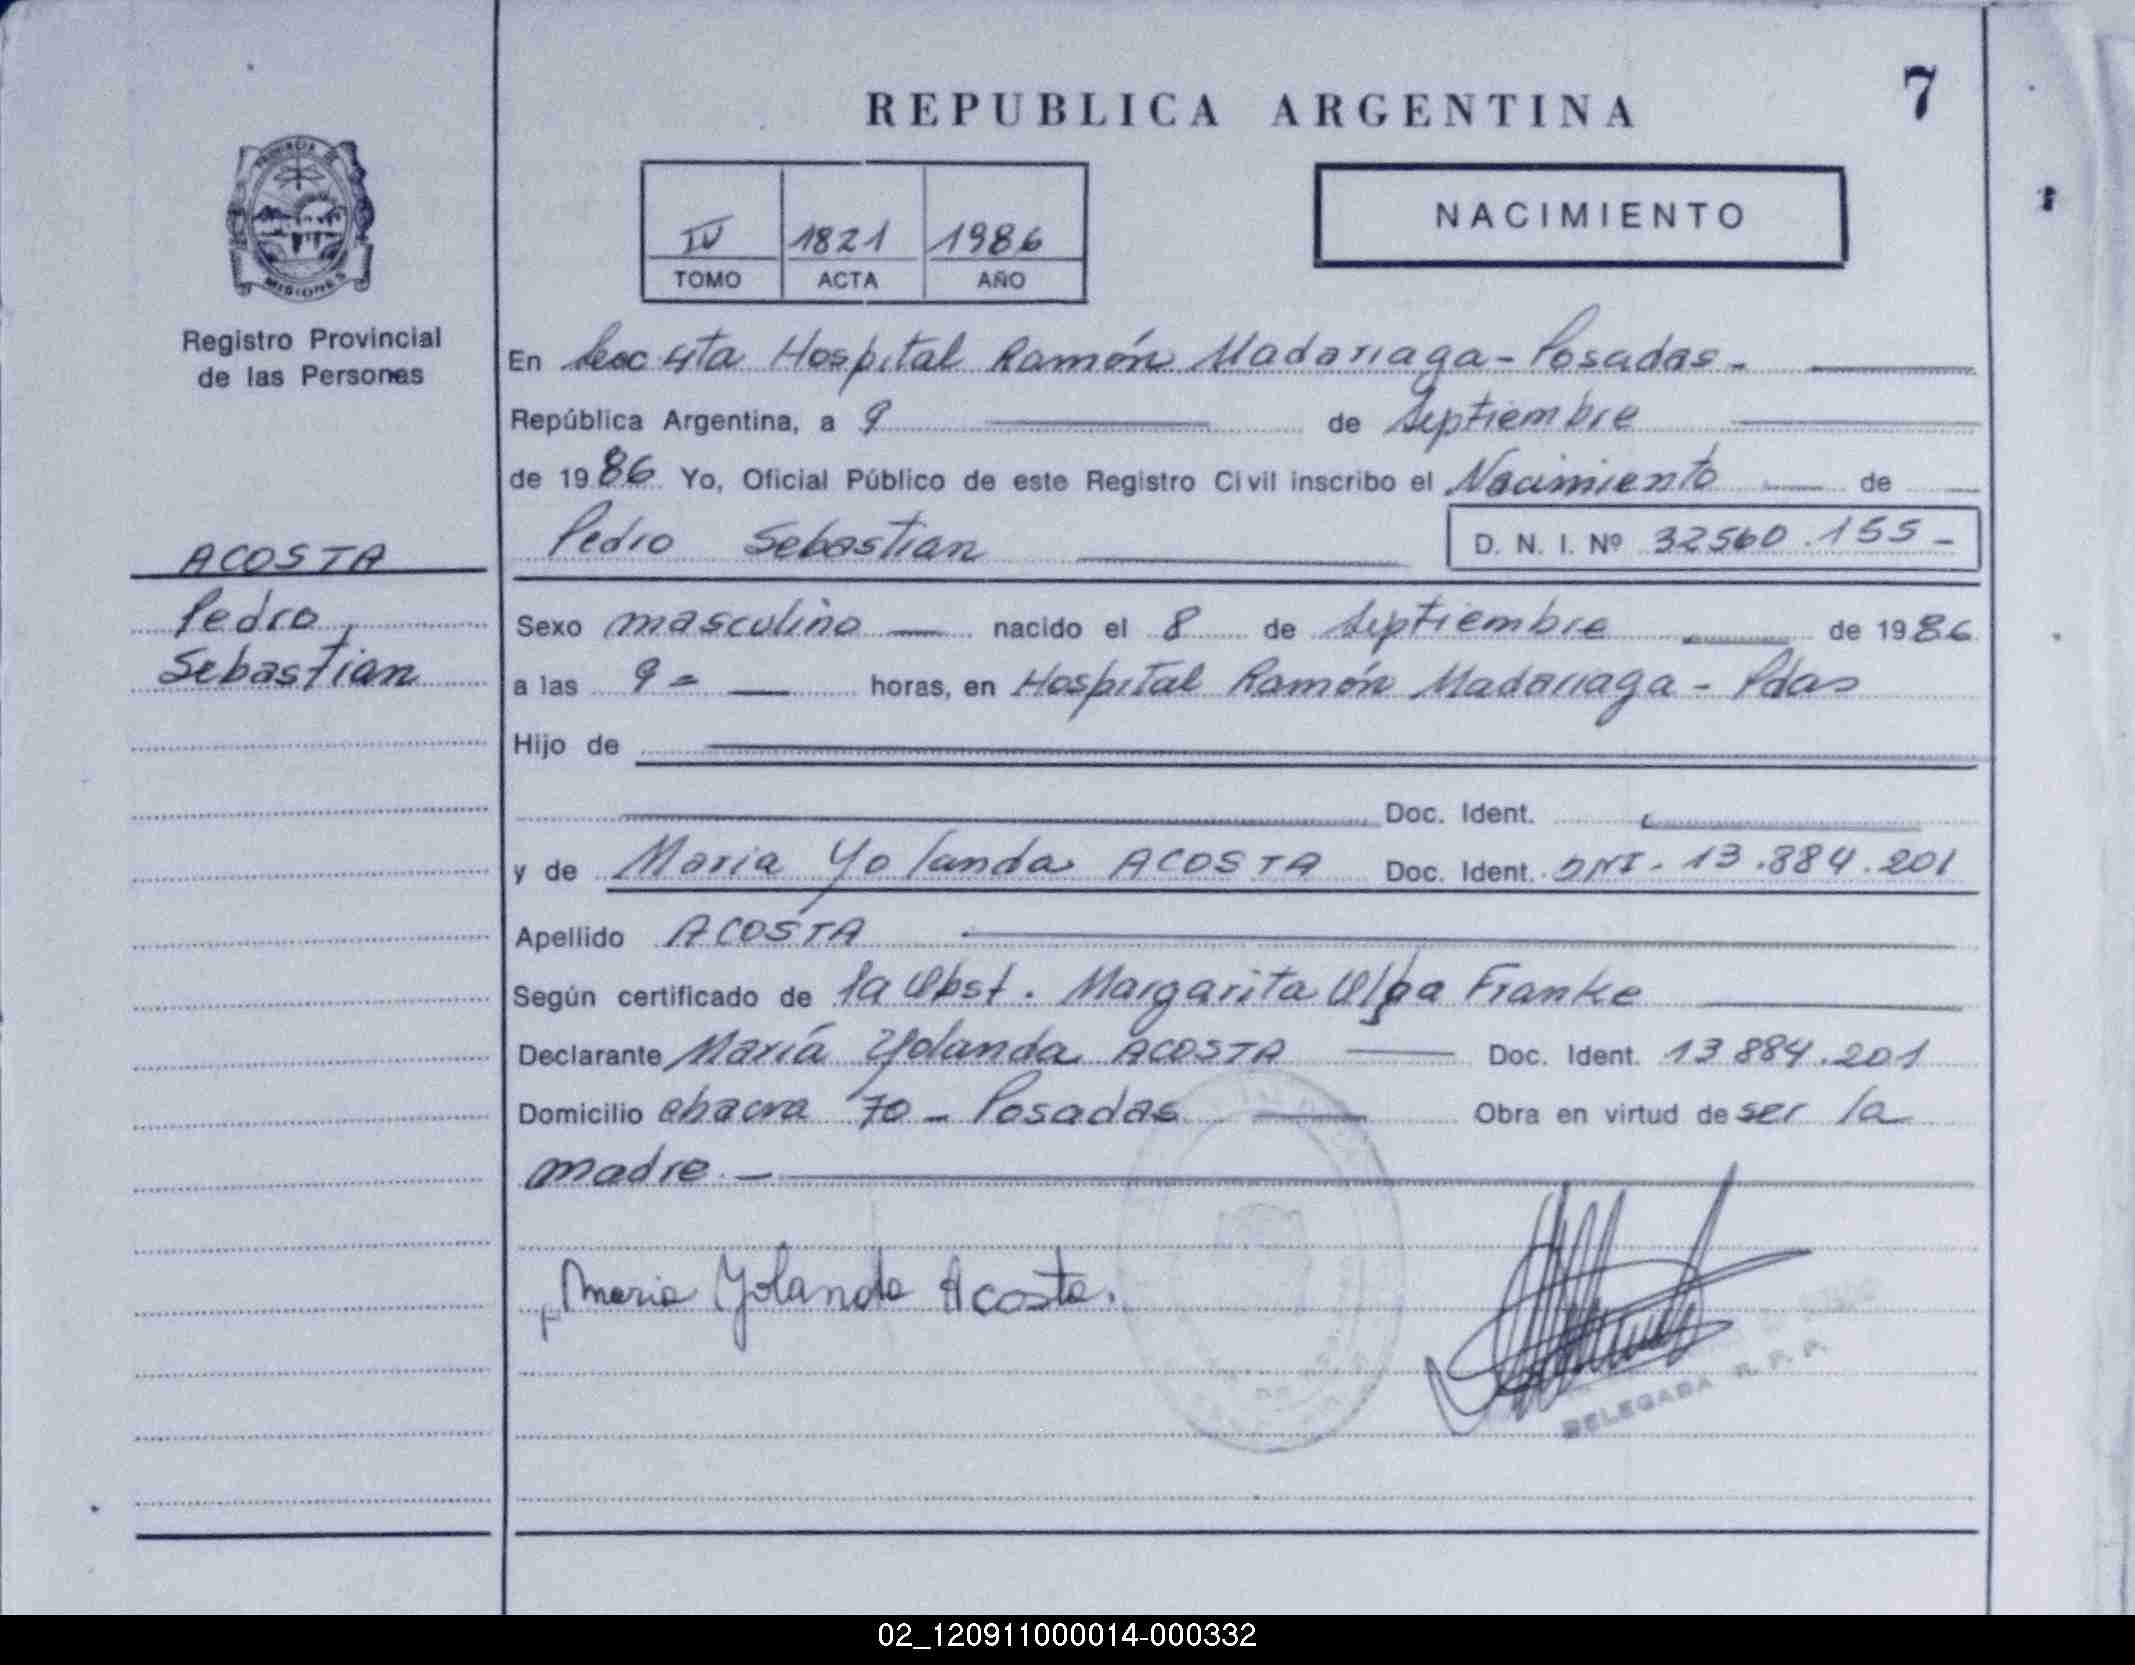 REPUBLICA ARGENTINA
7
PROVINCIA DE
MISIONES
Registro Provincial
de las Personas
IV 1821 1986
TOMO ACTA AÑO
NACIMIENTO
En Secc 4ta Hospital Ramón Madariaga - Posadas -
República Argentina, a 9 de Septiembre
de 1986 Yo, Oficial Público de este Registro Civil inscribo el Nacimiento de
Pedro Sebastian D. N. I. Nº 32560.155-
ACOSTA
Pedro,
Sebastian
Sexo masculino nacido el 8 de Septiembre de 1986
a las 9 = horas, en Hospital Ramón Madariaga - Pdas
Hijo de
Doc. Ident.
y de Maria Yolanda ACOSTA Doc. Ident. DNI - 13.884.201
Apellido ACOSTA
Según certificado de la Obst. Margarita Olga Franke
Declarante Mariá Yolanda ACOSTA Doc. Ident. 13884.201
Domicilio chacra 70 - Posadas Obra en virtud de ser la
madre -
Maria Yolanda Acosta.
DELEGADA R. P. P.
02_120911000014-000332